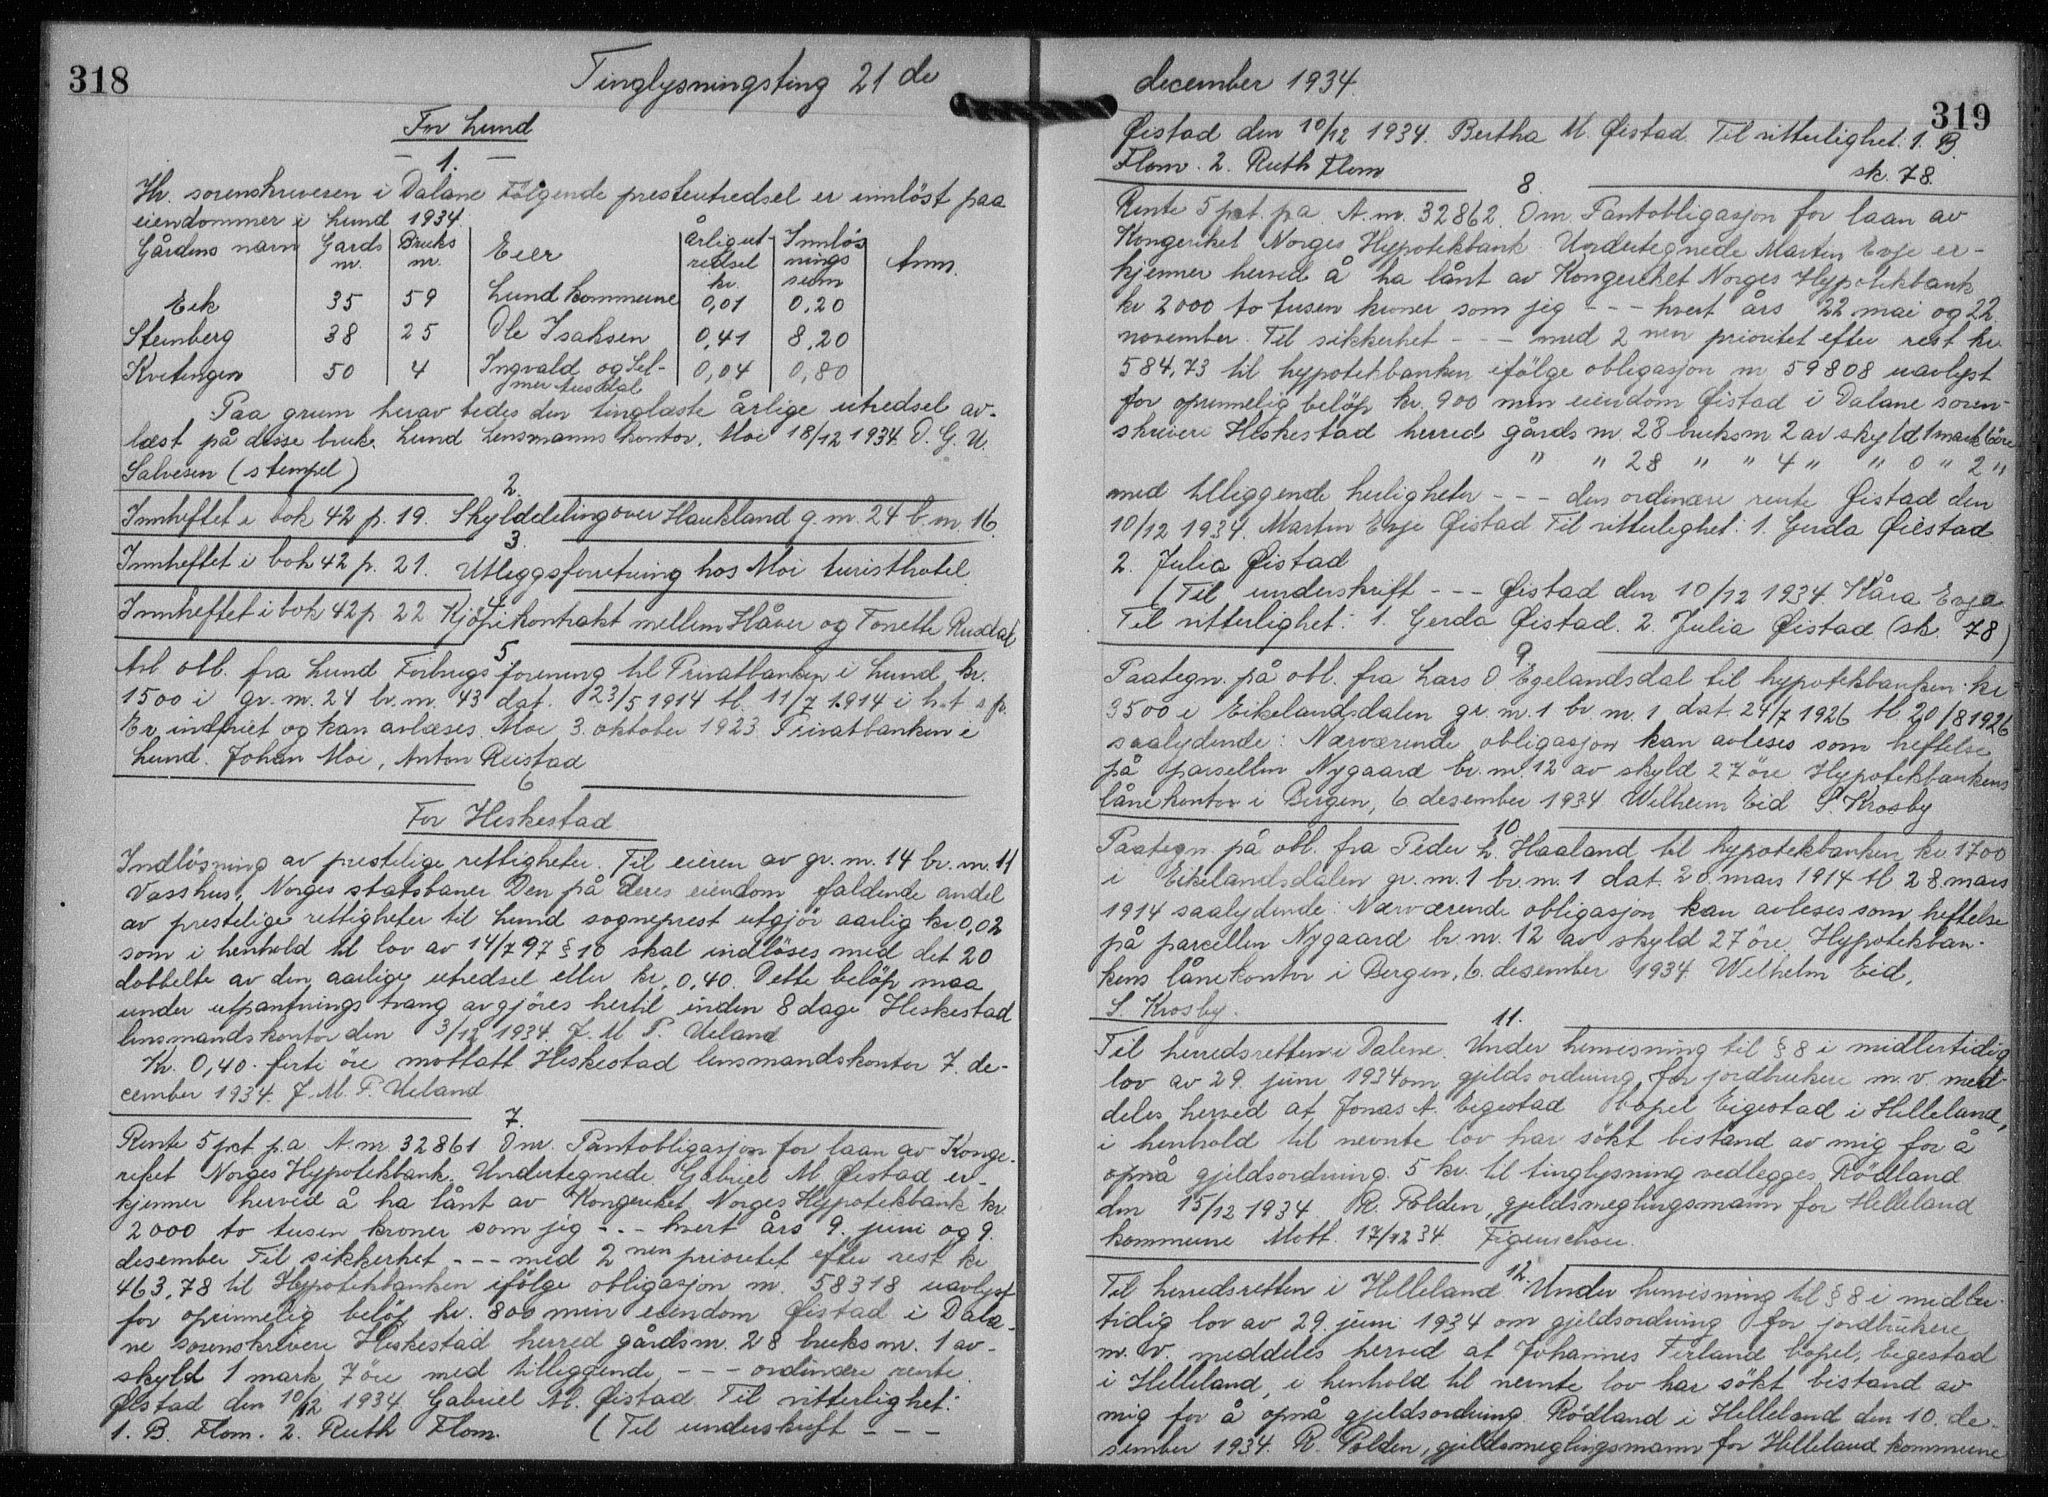 318
Tinglysningsting 21 de
For Lund
1.
Hr. sorenskriveren i Dalane Følgende presteutredsel er innlöst paa
eiendommer i Lund 1934.
Gårdens navn Gards nr. Bruks nr. Eier Årlig utredsel kr. Innløsnings sum Anm.
Eik 35 59 Lund kommune 0,01 0,20
Steinberg 38 25 Ole Isaksen 0,41 8,20
Kvitingen 50 4 Ingvald og Selmer Ausdal 0,04 0,80
Paa grunn herav bedes den tinglæste årlige utredsel av-
læst på disse bruk. Lund Lensmanns kontor, Moi 18/12 1934. O. G. U.
Salvesen (stempel)
2.
Innheftet i bok 42 p. 19. Skylddeling over Haukland g. nr. 24 b. nr. 16.
3.
Innheftet i bok 42 p. 21. Utleggsforretning hos Moi turisthotel.
4
Innheftet i bok 42 p. 22 Kjöpekontrakt mellem Håver og Tonette Rusdal
5
Avl. obl. fra Lund Forbrugsforening til Privatbanken i Lund kr.
1500 i gr. nr. 24 br. nr. 43 dat. 23/5 1914 tl. 11/7 1914 i h.t. s p.
Er indfriet og kan avlæses. Moi 3. oktober 1923. Privatbanken i
Lund. Johan Moi, Anton Reistad
6
For Heskestad
Indlösning av prestelige rettigheter. Til eieren av gr. nr. 14 br. nr. 11
Vasshus, Norges statsbaner Den på deres eiendom faldende andel
av prestelige rettigheter til Lund sogneprest utgjör aarlig kr. 0,02
som i henhold til lov av 14/7 97 § 10 skal indlöses med det 20
dobbelte av den aarlige utredsel eller kr. 0,40. Dette belöp maa
under utpantnings tvang avgjöres hertil inden 8 dage Heskestad
lensmandskontor den 3/12 1934. J. M. P. Ueland
Kr. 0,40. firti öre mottatt Heskestad lensmandskontor 7. de-
cember 1934. J. M. P. Ueland.
7.
Rente 5 pct p. a A. nr 32861 Omr. Pantobligasjon for laan av Konge-
riket Norges Hypotekbank. Undertegnede Gabriel M. Øistad er-
kjenner herved å ha lånt av Kongeriket Norges Hypotekbank kr.
2000 to tusen kroner som jeg - - - hvert års 9. juni og 9.
desember Til sikkerhet - - - med 2 nen prioritet efter rest kr
463,78 til Hypotekbanken ifölge obligasjon nr. 58318 uavlyst
for oprinnelig belöp kr. 800 min eiendom Øistad i Dala-
ne sorenskriveri Heskestad herred gårdsnr. 28 bruksnr. 1 av-
skyld 1 mark 7 öre med tilliggende - - - ordinære rente.
Øistad den 10/12 1934. Gabriel M. Øistad Til vitterlighet:
1. B. Flom. 2. Ruth Flom. (Til underskrift - - -
december 1934.
319
Øistad den 10/12 1934. Bertha M. Øistad. Til vitterlighet. 1. B.
Flom. 2. Ruth Flom sk. 78.
8.
Rente 5 pct. pa. A. nr. 32862. Om. Pantobligasjon for laan av
Kongeriket Norges Hypotekbank. Undertegnede Martin Evje er-
kjenner herved å ha lånt av Kongeriket Norges Hypotekbank
kr 2000 to tusen kroner som jeg - - - hvert års 22 mai og 22.
november. Til sikkerhet - - - med 2 nen prioritet efter rest kr
584,73 til hypotekbanken ifölge obligasjon nr 59808 uavlyst
for oprinnelig belöp kr. 900 min eiendom Øistad i Dalane soren-
skriveri Heskestad herred gårds nr. 28 bruksnr 2 av skyld 1 mark 6 öre
" " 28 " " 4 " " 0 " 2 "
med tilliggende herligheter - - - den ordinære rente Øistad den
10/12 1934. Martin Evje Øistad Til vitterlighet: 1. Gerda Øistad
2. Julia Øistad
(Til underskrift - - - Øistad den 10/12 1934. Kåra Evje
Til vitterlighet: 1. Gerda Øistad. 2. Julia Øistad (sk. 78)
9
Paategn. på obl. fra Lars O Egelandsdal til hypotekbanken kr
3500 i Eikelandsdalen gr. nr. 1 br. nr. 1 dat. 24/7 1926 tl 20/8 1926
saalydende: Nærværende obligasjon kan avleses som heftelse
på parsellen Nygaard br. nr. 12 av skyld 27 öre Hypotekbankens
lånekontor i Bergen, 6 desember 1934 Wilhelm Eid S. Krosby
10
Paategn. på obl. fra Peder L. Haaland til hypotekbanken kr. 1700
i Eikelandsdalen gr. nr. 1 br. nr. 1 dat. 20. mars 1914 tl 28. mars
1914 saalydende: Nærværende obligasjon kan avleses som heftelse
på parcellen Nygaard br. nr. 12 av skyld 27 öre. Hypotekban-
kens lånekontor i Bergen, 6. desember 1934 Wilhelm Eid,
S. Krosby.
11.
Til herredsretten i Dalene. Under henvisning til § 8 i midlertidig
lov av 29. juni 1934 om gjeldsordning for jordbrukere m. v. med-
deles herved at Jonas A. Eigestad bopel Eigestad i Helleland,
i henhold til nevnte lov har sökt bistand av mig for å
opnå gjeldsordning. 5 kr. til tinglysning vedlegges, Rödland
den 15/12 1934 R. Polden, gjeldsmeglingsmann for Helleland
kommune Mott. 17/12 34. Figenschou.
12.
Til herredsretten i Helleland. Under henvisning til § 8 i midler-
tidig lov av 29. juni 1934 om gjeldsordning for jordbrukere
m. v. meddeles herved at Johannes Terland bopel, Eigestad
i Helleland, i henhold til nevnte lov har sökt bistand av
mig for å opnå gjeldsordning. Rödland i Helleland den 10. de-
sember 1934. R. Polden, gjeldsmeglingsmann for Helleland kommune